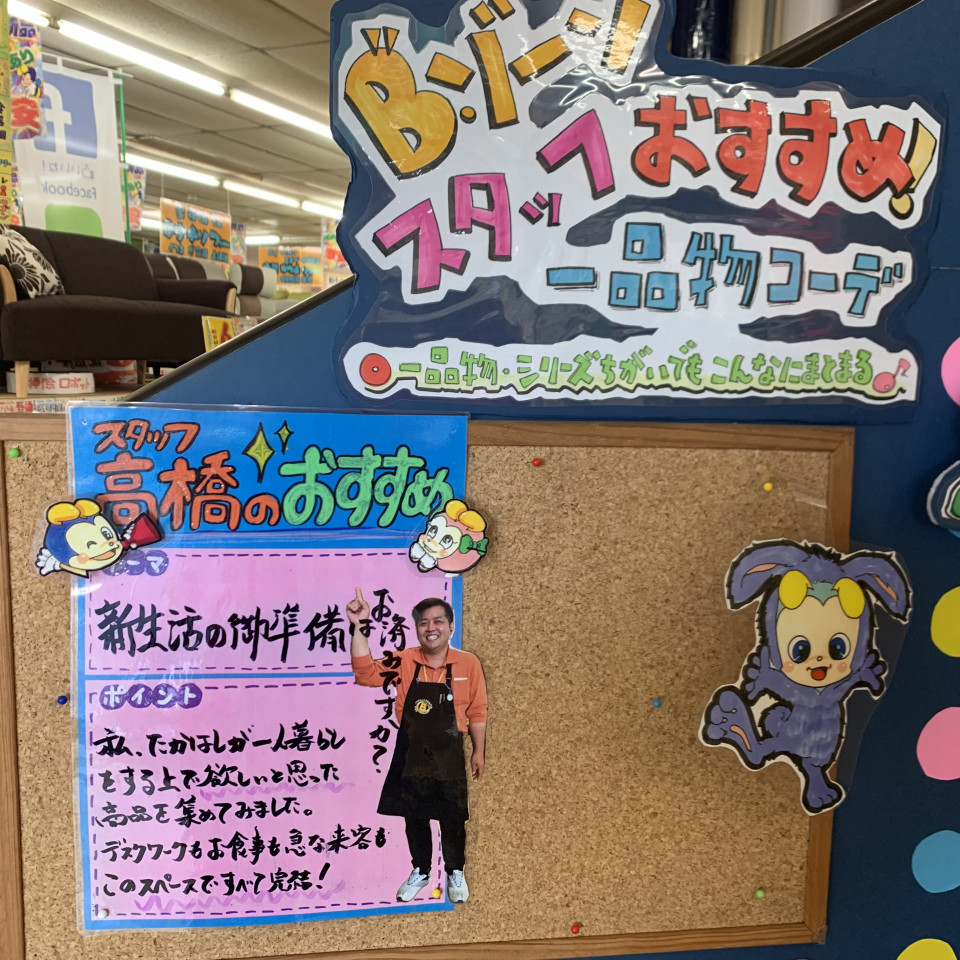 B・ゾーン
スタッフおすすめ!
一品物コーデ
一品物・シリーズちがいでも こんなにまとまる♪
Facebook
スタッフ
高橋のおすすめ
テーマ
新生活の御準備は
お済みですか?
ポイント
私、たかはしが一人暮らし
をする上で欲しいと思った
商品を集めてみました。
デスクワークもお食事も急な来客も
このスペースですべて完結!